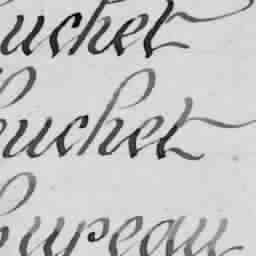 ouchet
ouchet
Bureau